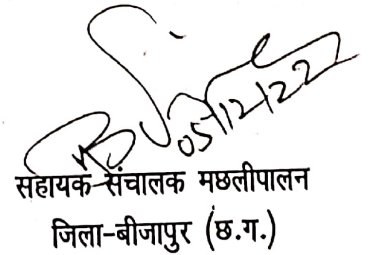 05/12/22
सहायक संचालक मछलीपालन
जिला-बीजापुर (छ.ग.)